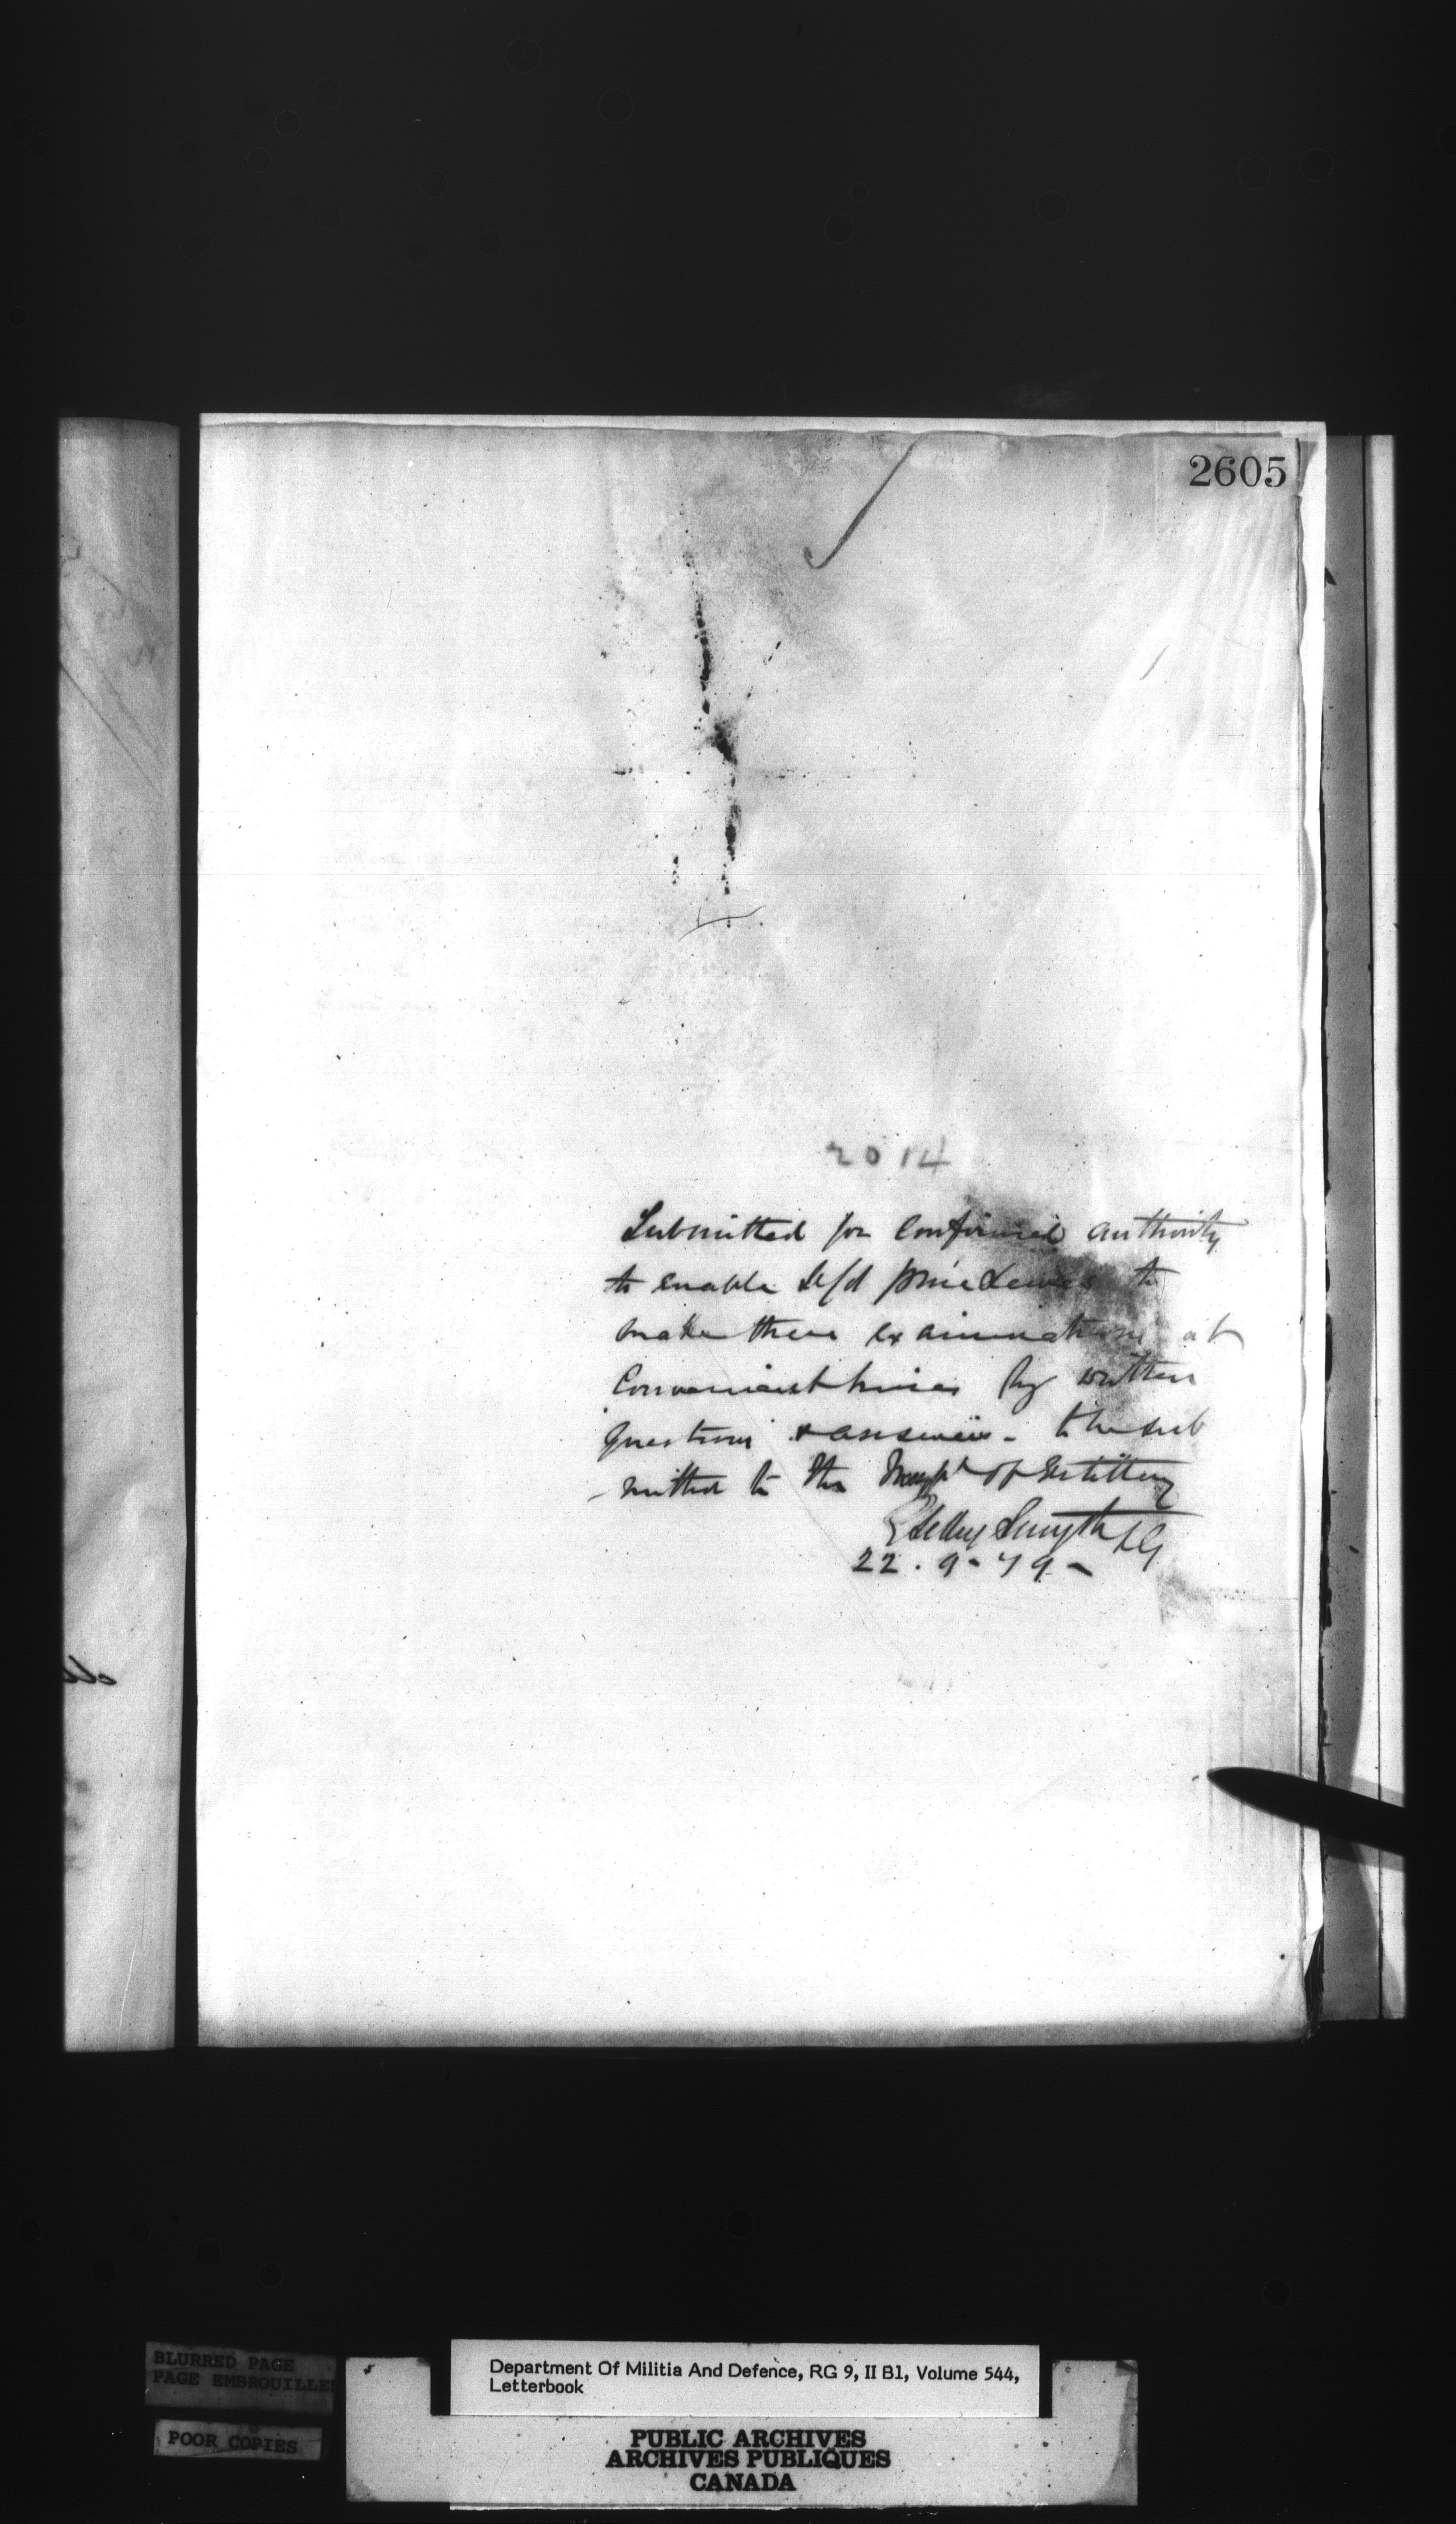 2605
2014
Submitted for confirmed authority
to enable to
make these examinations at
convenient times by written
questions & answers - to be sub
- mitted to the Inspr of Artillery
E Selby Smyth LG
22 . 9 - 79 -
BLURRED PAGE
PAGE EMBROUILLEE
POOR COPIES
Department Of Militia And Defence, RG 9, II B1, Volume 544,
Letterbook
PUBLIC ARCHIVES
ARCHIVES PUBLIQUES
CANADA